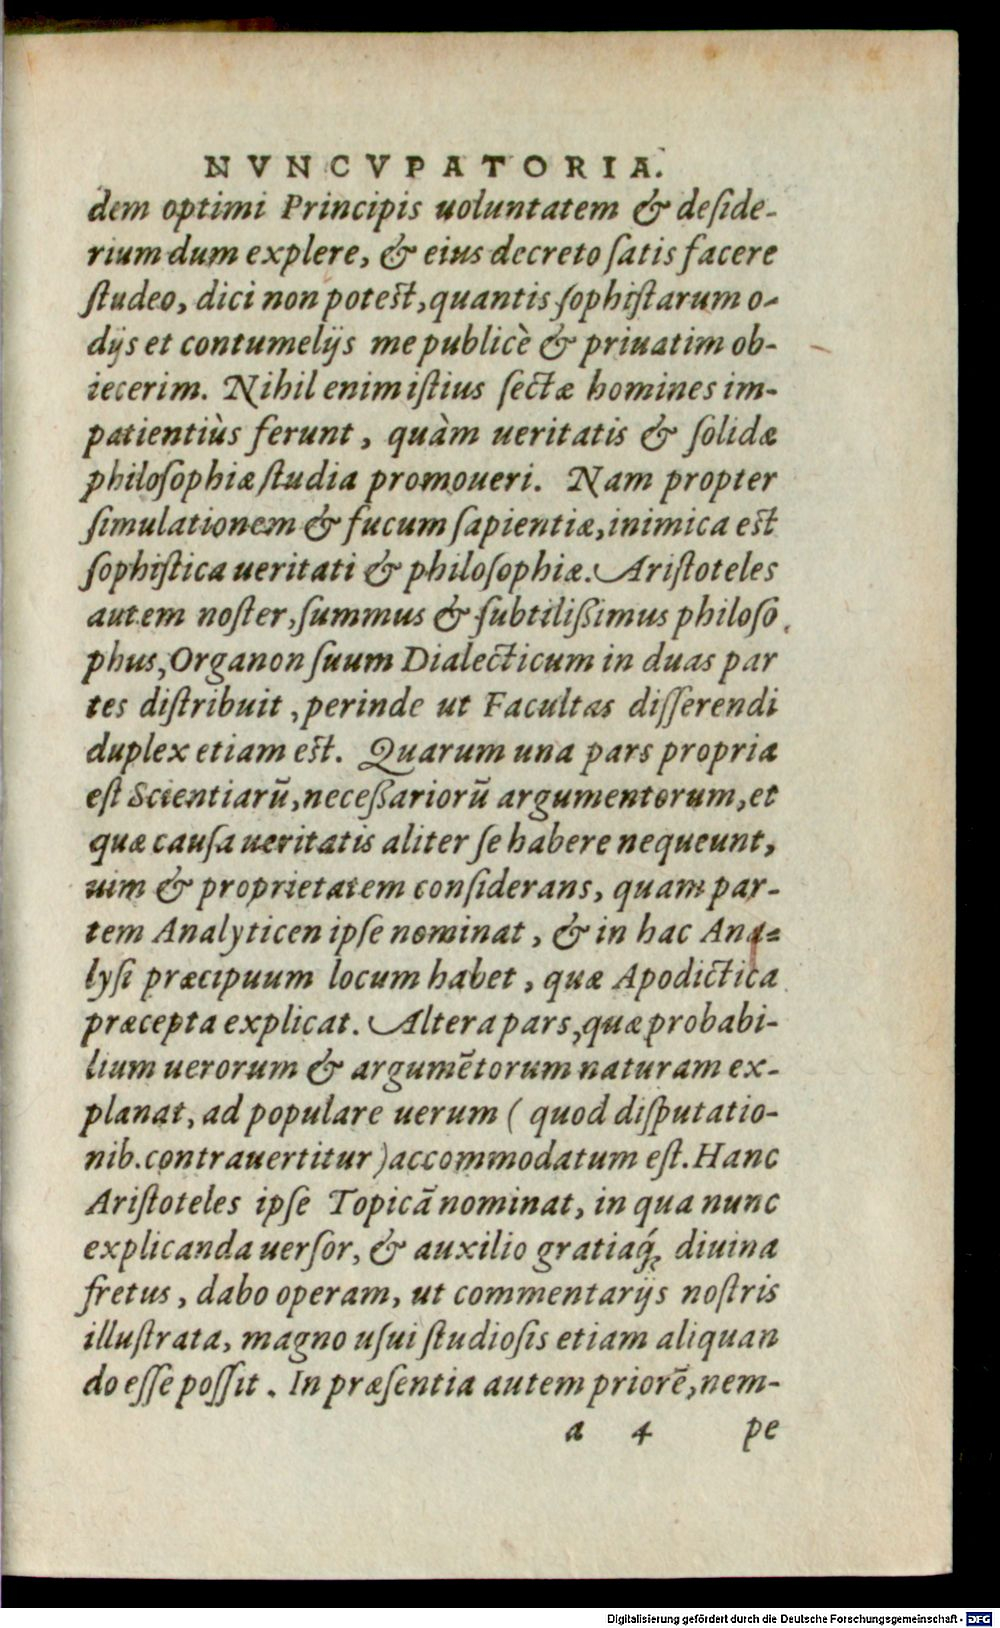 NVNCVPATORIA.
dem optimi Principis uoluntatem & deſide-
rium dum explere, & eius decreto ſatis facere
ſtudeo, dici non poteſt, quantis ſophiſtarum o-
dijs et contumelijs me publicè & priuatim ob-
iecerim. Nihil enim iſtius ſectæ homines im-
patientiùs ferunt, quàm ueritatis & ſolidæ
philoſophiæ ſtudia promoueri. Nam propter
ſimulationem & fucum ſapientiæ, inimica eſt
ſophiſtica ueritati & philoſophiæ. Ariſtoteles
autem noſter, ſummus & ſubtilißimus philoſo
phus, Organon ſuum Dialecticum in duas par
tes diſtribuit, perinde ut Facultas diſſerendi
duplex etiam eſt. Quarum una pars propria
eſt Scientiarū, neceßariorū argumentorum, et
quæ cauſa ueritatis aliter ſe habere nequeunt,
uim & proprietatem conſiderans, quam par-
tem Analyticen ipſe nominat, & in hac Ana-
lyſi præcipuum locum habet, quæ Apodictica
præcepta explicat. Altera pars, quæ probabi-
lium uerorum & argumētorum naturam ex-
planat, ad populare uerum ( quod diſputatio-
nib. contrauertitur ) accommodatum eſt. Hanc
Ariſtoteles ipſe Topicā nominat, in qua nunc
explicanda uerſor, & auxilio gratiaq́ꝫ diuina
fretus, dabo operam, ut commentarijs noſtris
illuſtrata, magno uſui ſtudioſis etiam aliquan
do eſſe poſſit. In præſentia autem priorē, nem-
a 4 pe
Digitalisierung gefördert durch die Deutsche Forschungsgemeinschaft - DFG